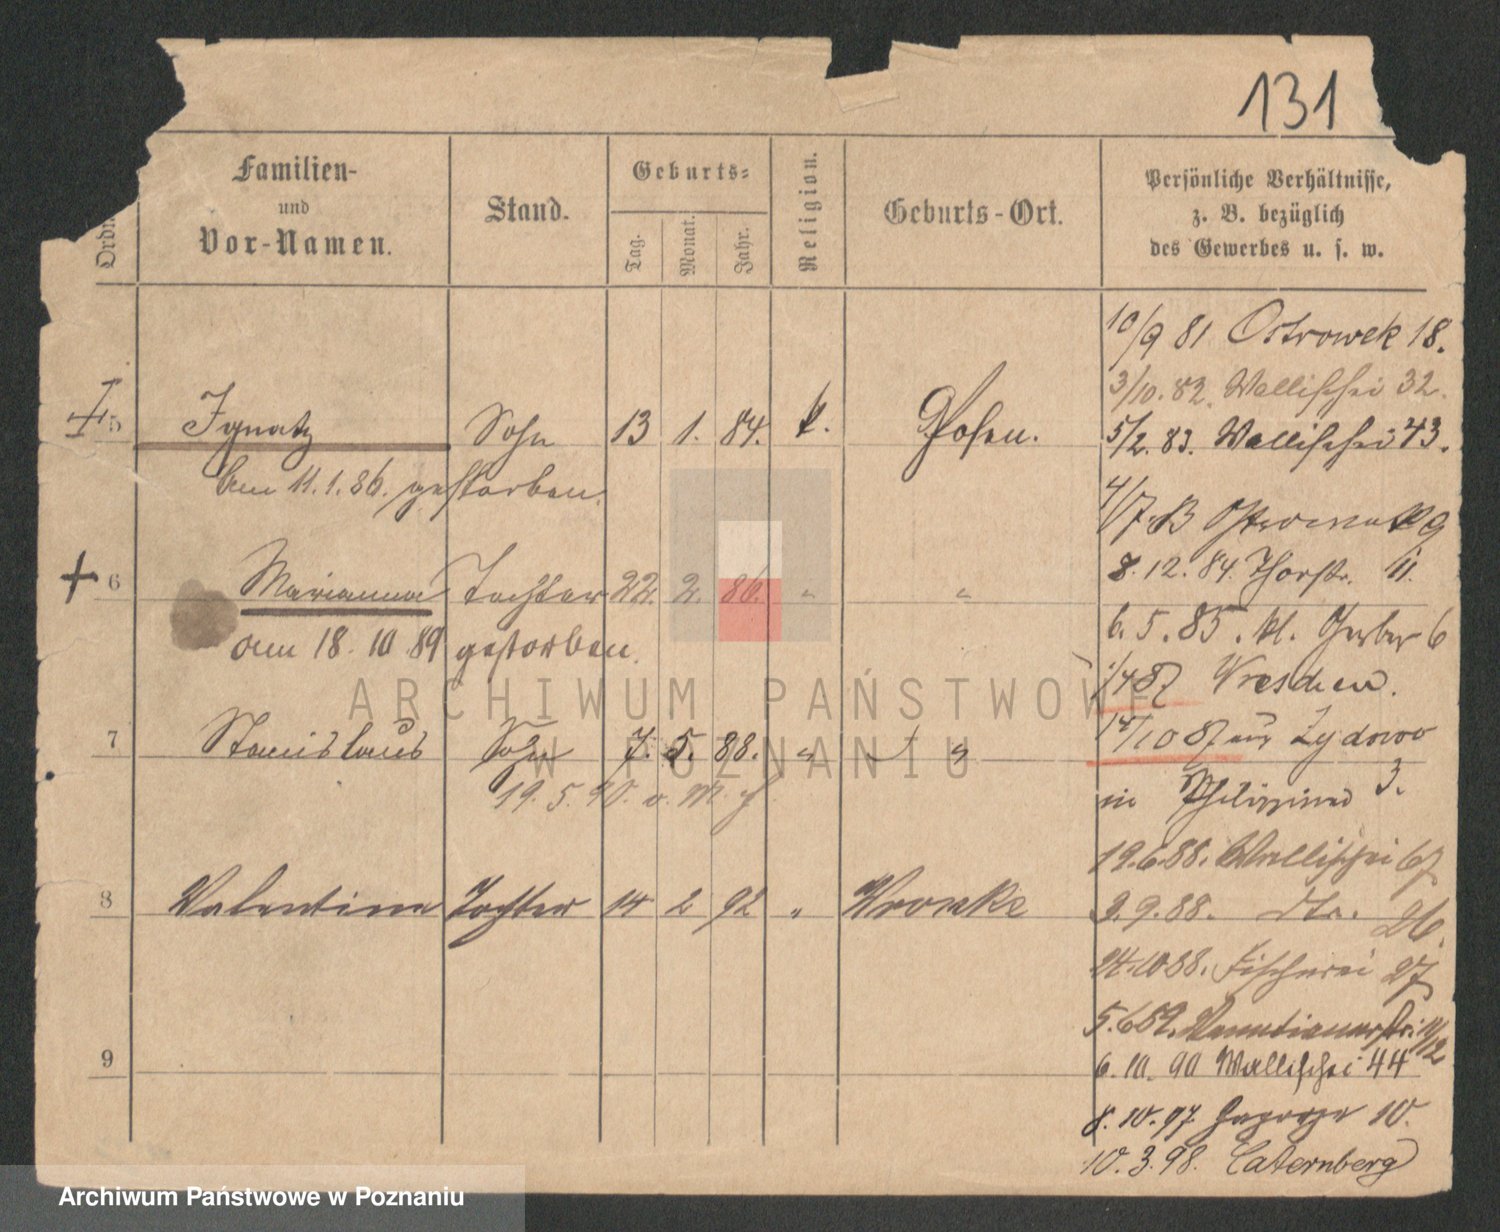 131
Ordn
Familien- und Vor-Namen.
Stand.
Geburts-
Tag. Monat. Jahr.
Religion.
Geburts-Ort.
Persönliche Verhältnisse, z. B. bezüglich des Gewerbes u. s. w.
5 Ignatz Sohn 13 1. 84. k. Posen.
am 11.1.86. gestorben.
6 Marianna Tochter 22. 2. 86. " "
am 18. 10 89 gestorben.
7 Stanislaus Sohn 7. 5. 88. " "
19. 5. 90. v. M. f
8 Valentine Tochter 14 2 92 " Wronke
9
10/9 81 Ostrowek 18.
3/10. 82. Wallischei 32.
5/2. 83. Wallischei 43.
4/7. 83 9
8. 12. 84. Thorstr. 11.
6. 5. 85. kl. Gerber 6
1/4 87 Wreschen.
14/10 87 aus Zydowo
in 3.
19.6.88. Wallischei 67
9.9.88. dto. 26.
24.10.88. Fischerei 27
5.6.89. Venetianerstr. 11/12
6. 10. 90 Wallischei 44
8. 10. 97. 10.
10. 3. 98. Caternberg
ARCHIWUM PAŃSTWOWE
W POZNANIU
Archiwum Państwowe w Poznaniu